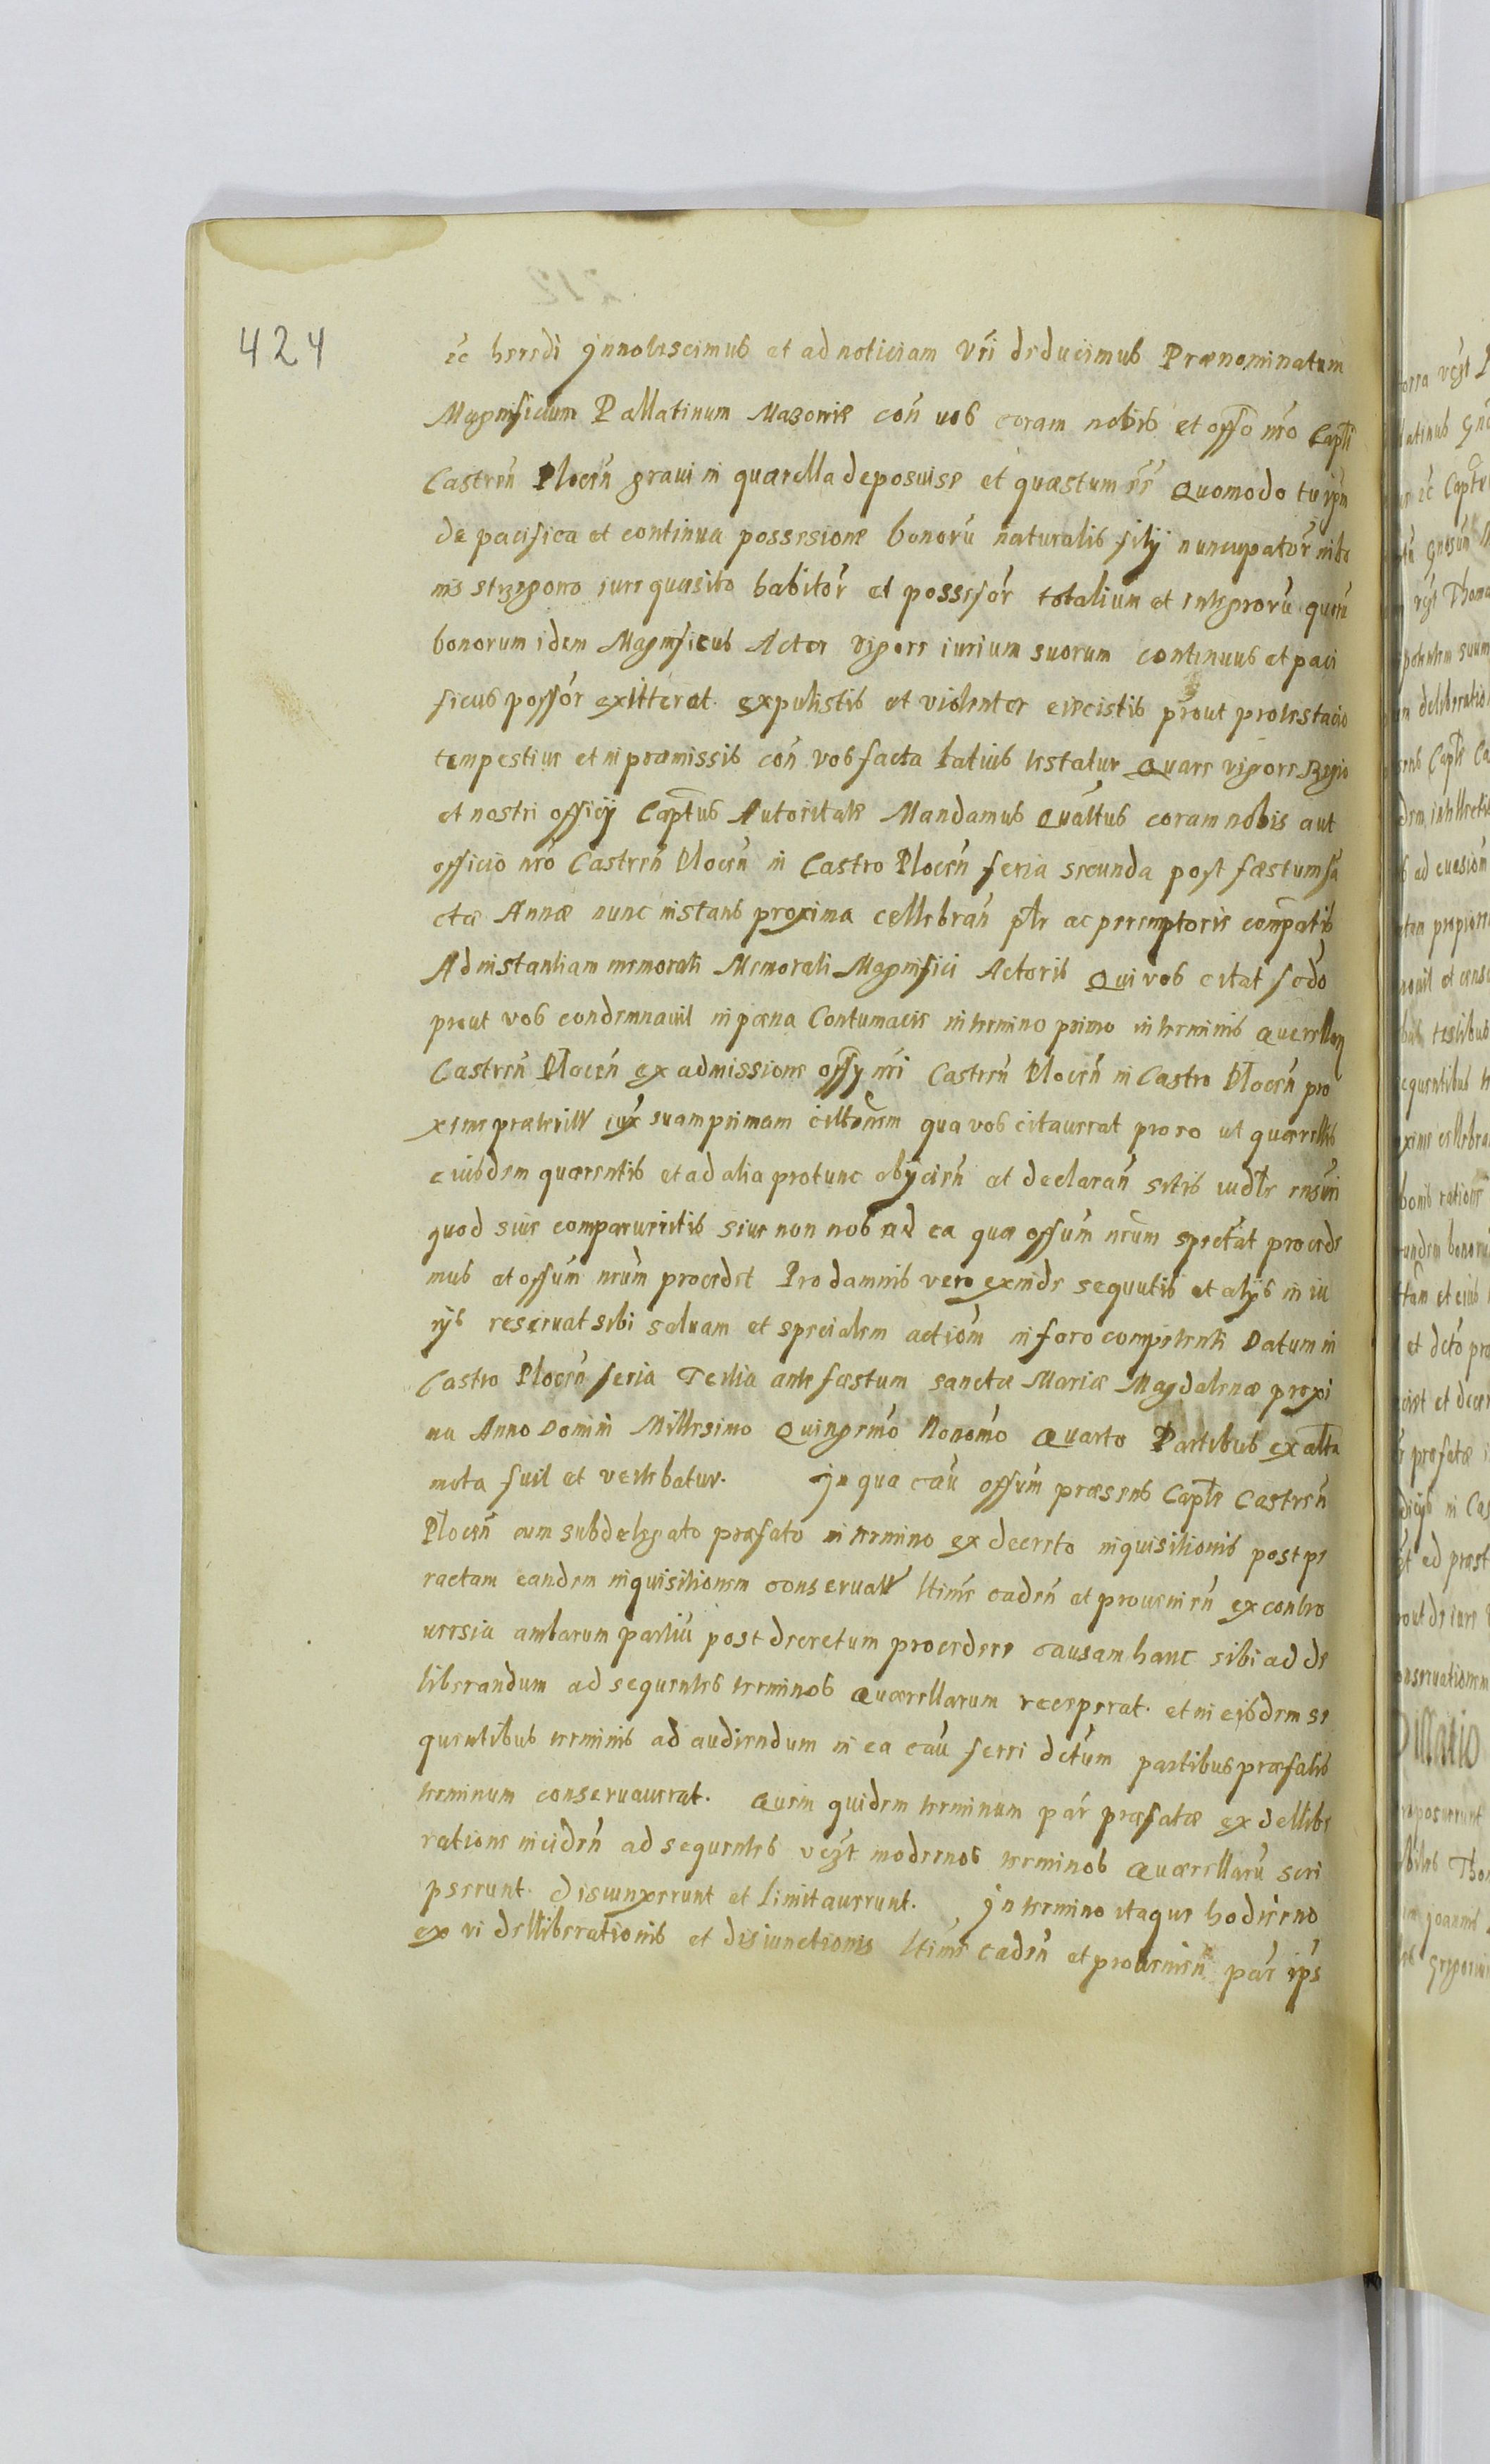 424
ec heredi Jnnotescimus et ad noticiam vri deducimus Prænominatum
Magnificum Pallatinum Mazoviæ con vos coram nobis et offo nro Capli
Castren Plocen gravi in quærella deposuisse et quæstum ee Quomodo tu ipm
de pacifica et continua possesione bonoru naturalis filij nuncupator
nis strzegono iure quæsito habitor et possesor totalium et integroru
bonorum idem Magnificus Actor vigore iurium suorum continuus et paci
ficus possor exttterat. expulistis et violenter eiecistis prout protestacio
tempestive et in præmissis con vos facta latius testatur Quare vigore Regio
et nostri officij Captus Autoritate Mandamus Quattus coram nobis aut
officio nro Castren Plocen in Castro Plocen feria secunda post fæstum sa
ctæ Annæ nunc instans proxima cellebran ptr ac peremptorie compatis
Ad instantiam memorati Memorati Magnifici Actoris Qui vos citat sedo
prout vos condemnavit in pæna Contumaciæ in termino primo in terminis Quærellarum
Castren Plocen ex admissione offy nri Castren Plocen in Castro Plocen pro
xime præterit iux suam primam cittonem qua vos citaverat pro eo ut quærellis
eiusdem quærentis et ad alia protunc obijcien et declaran sitis iudtr
quod sive comparueritis sive non nos ad ea quæ offum nrum spectat procede
mus et offum nrum procedet Pro damnis vero exinde sequutis et alijs in iu
rijs reservat sibi salvam et specialem actiom in foro competenti Datum in
Castro Plocen feria Tertia ante fæstum sanctæ Mariæ Magdalenæ proxi
ma Anno Domini Millesimo Quingemo Nonomo Quarto Partibus ex alta
mota fuit et vertebatur. Jn qua cau offum præsens Captr Castren
Plocen cum subdelegato præfato in termino ex decreto inquisitionis post pe
ractam eandem inquisitionem conservatt ltime caden et provenien ex contro
versia ambarum partiu post decretum procedere causam hanc sibi ad de
liberandum ad sequentes terminos Quærellarum receperat. et in eisdem se
quentibus terminis ad audiendum in ea cau ferri dctum partibus præfatis
terminum conservaverat. Quem quidem terminum par præfatæ ex dellibe
ratione inciden ad sequentes vegt modernos terminos Quærellaru scri
pserunt disiunxerunt et limitaverunt. Jn termino itaque hodierno
ex vi delliberationis et disiunctionis ltime caden et provenien par ips